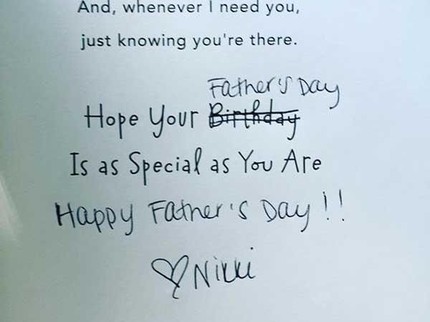 And, whenever I need you,
just knowing you're there.
Father's Day
Hope Your Birthday
Is as Special as You Are
Happy Father's Day!!
♡Nikki